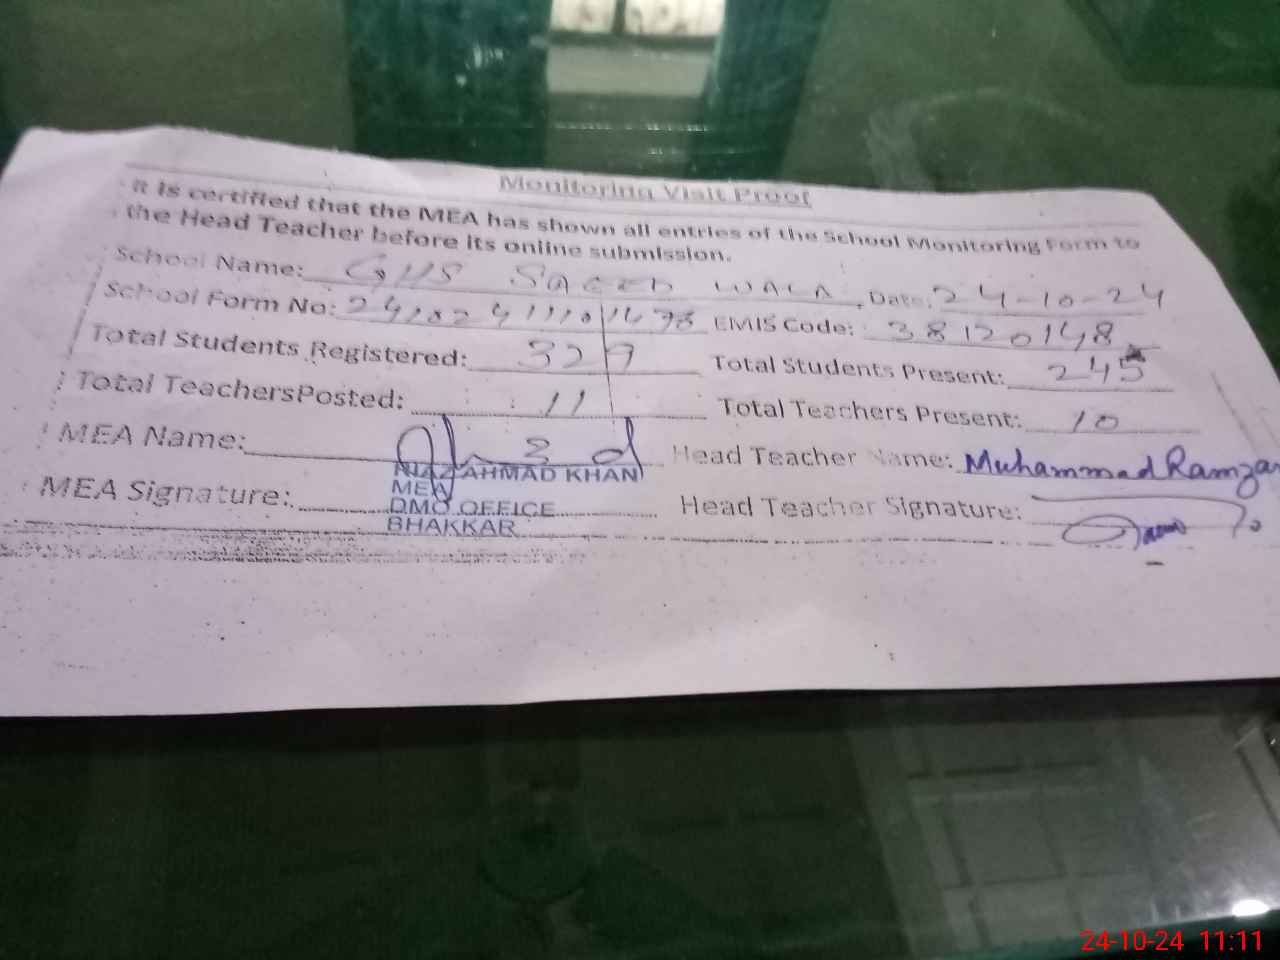 Monitoring Visit Proof
It is certified that the MEA has shown all entries of the School Monitoring Form to
the Head Teacher before its online submission.
School Name: GHS Saeed wala, Date: 24-10-24
School Form No: EMIS Code: 38120148
Total Students Registered: 329 Total Students Present: 245
Total TeachersPosted: 11 Total Teachers Present: 10
MEA Name: Head Teacher Name: Muhammad Ramzan
NIAZ AHMAD KHAN
MEA
MEA Signature: Head Teacher Signature:
DMO OFFICE
BHAKKAR
24-10-24 11:11